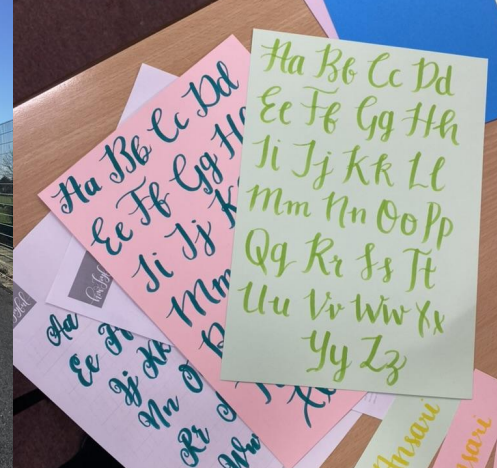 Aa Bb Cc Dd
Ee Ff Gg Hh
Ii Jj Kk Ll
Mm Nn Oo Pp
Qq Rr Ss Tt
Uu Vv Ww Xx
Yy Zz
Aa Bb Cc Dd
Ee Ff Gg H
Ii Jj K
Mm
Aa
Ee Ff
Jj Kk
Nn O
Rr
Ww
Ansari
nsari